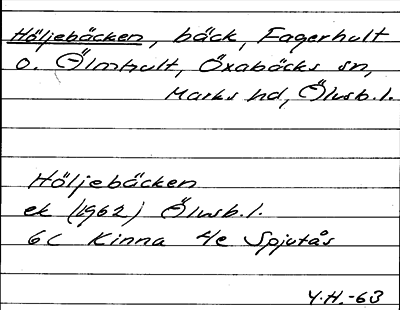 Höljebäcken, bäck, Fagerhult
o. Älmhult, Öxabäcks sn,
Marks hd, Älvsb.l.
Höljebäcken
ek (1962) Älvsb.l.
6C Kinna 4e Spjutås
Y.H.-63